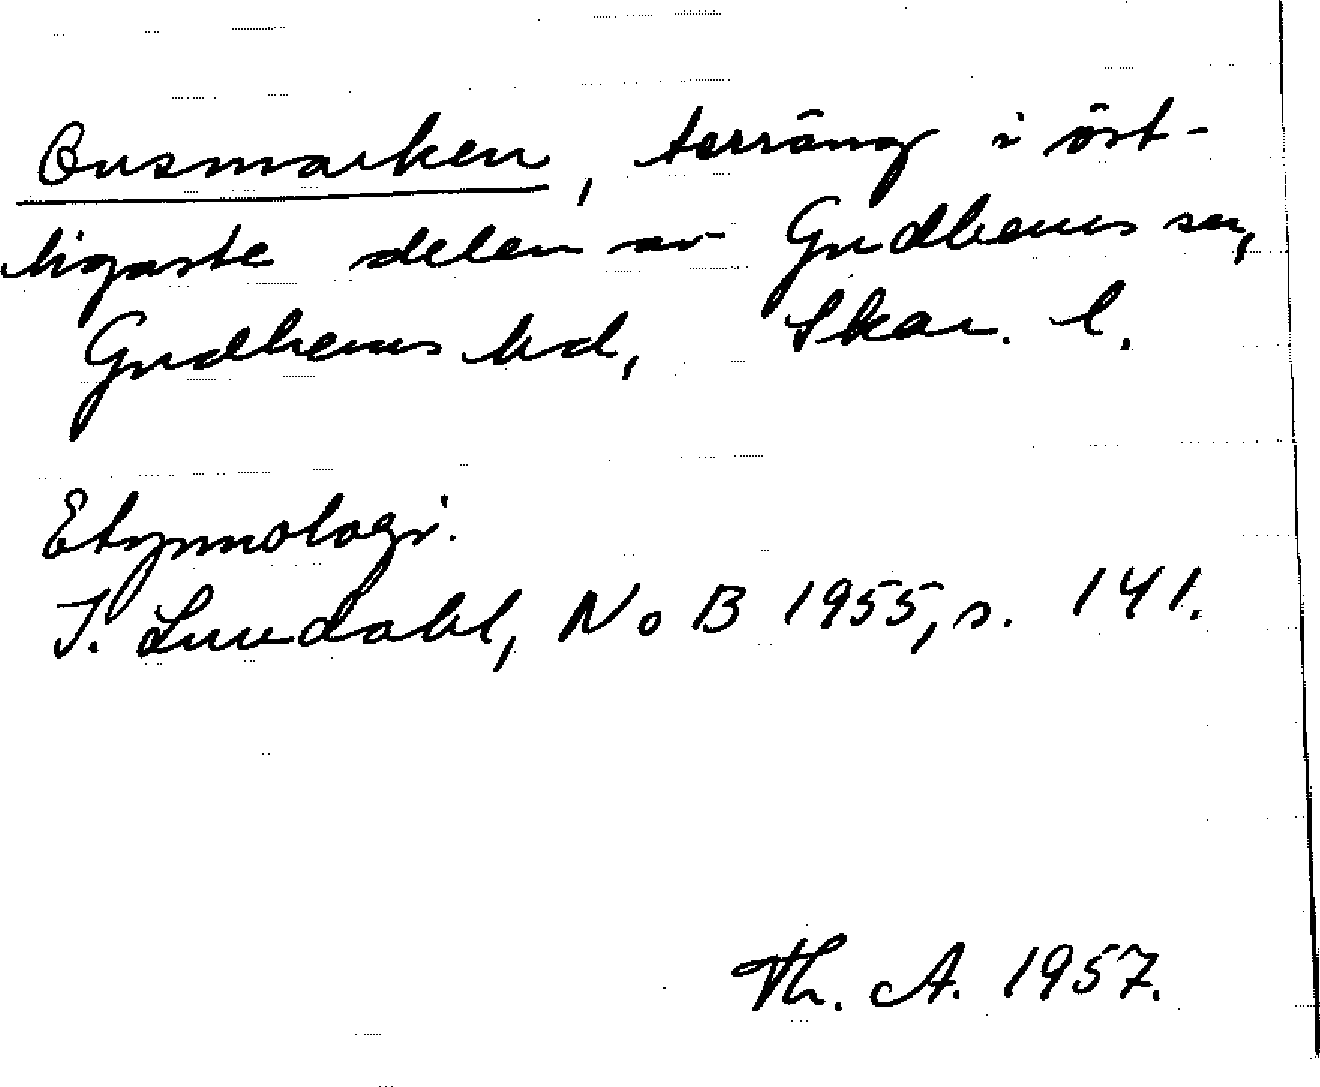 Onsmarken, terräng i öst-
ligaste delen av Gudhems sn,
Gudhems hd, Skar. l.
Etymologi.
I. Lundahl, NoB 1955, s. 141.
Th. A. 1957.